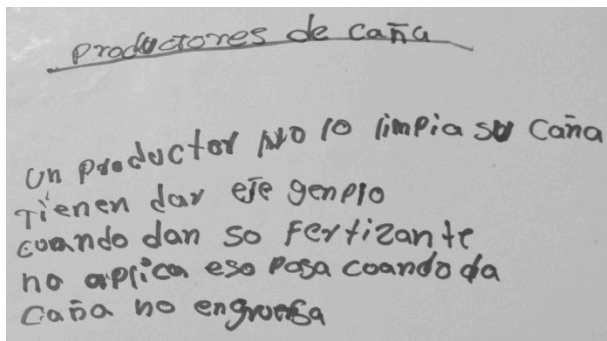 productores de caña
un productor No lo limpia su caña
Tienen dar eje genplo
cuando dan so Fertizante
no aplica eso Pasa coando da
caña no engruesa